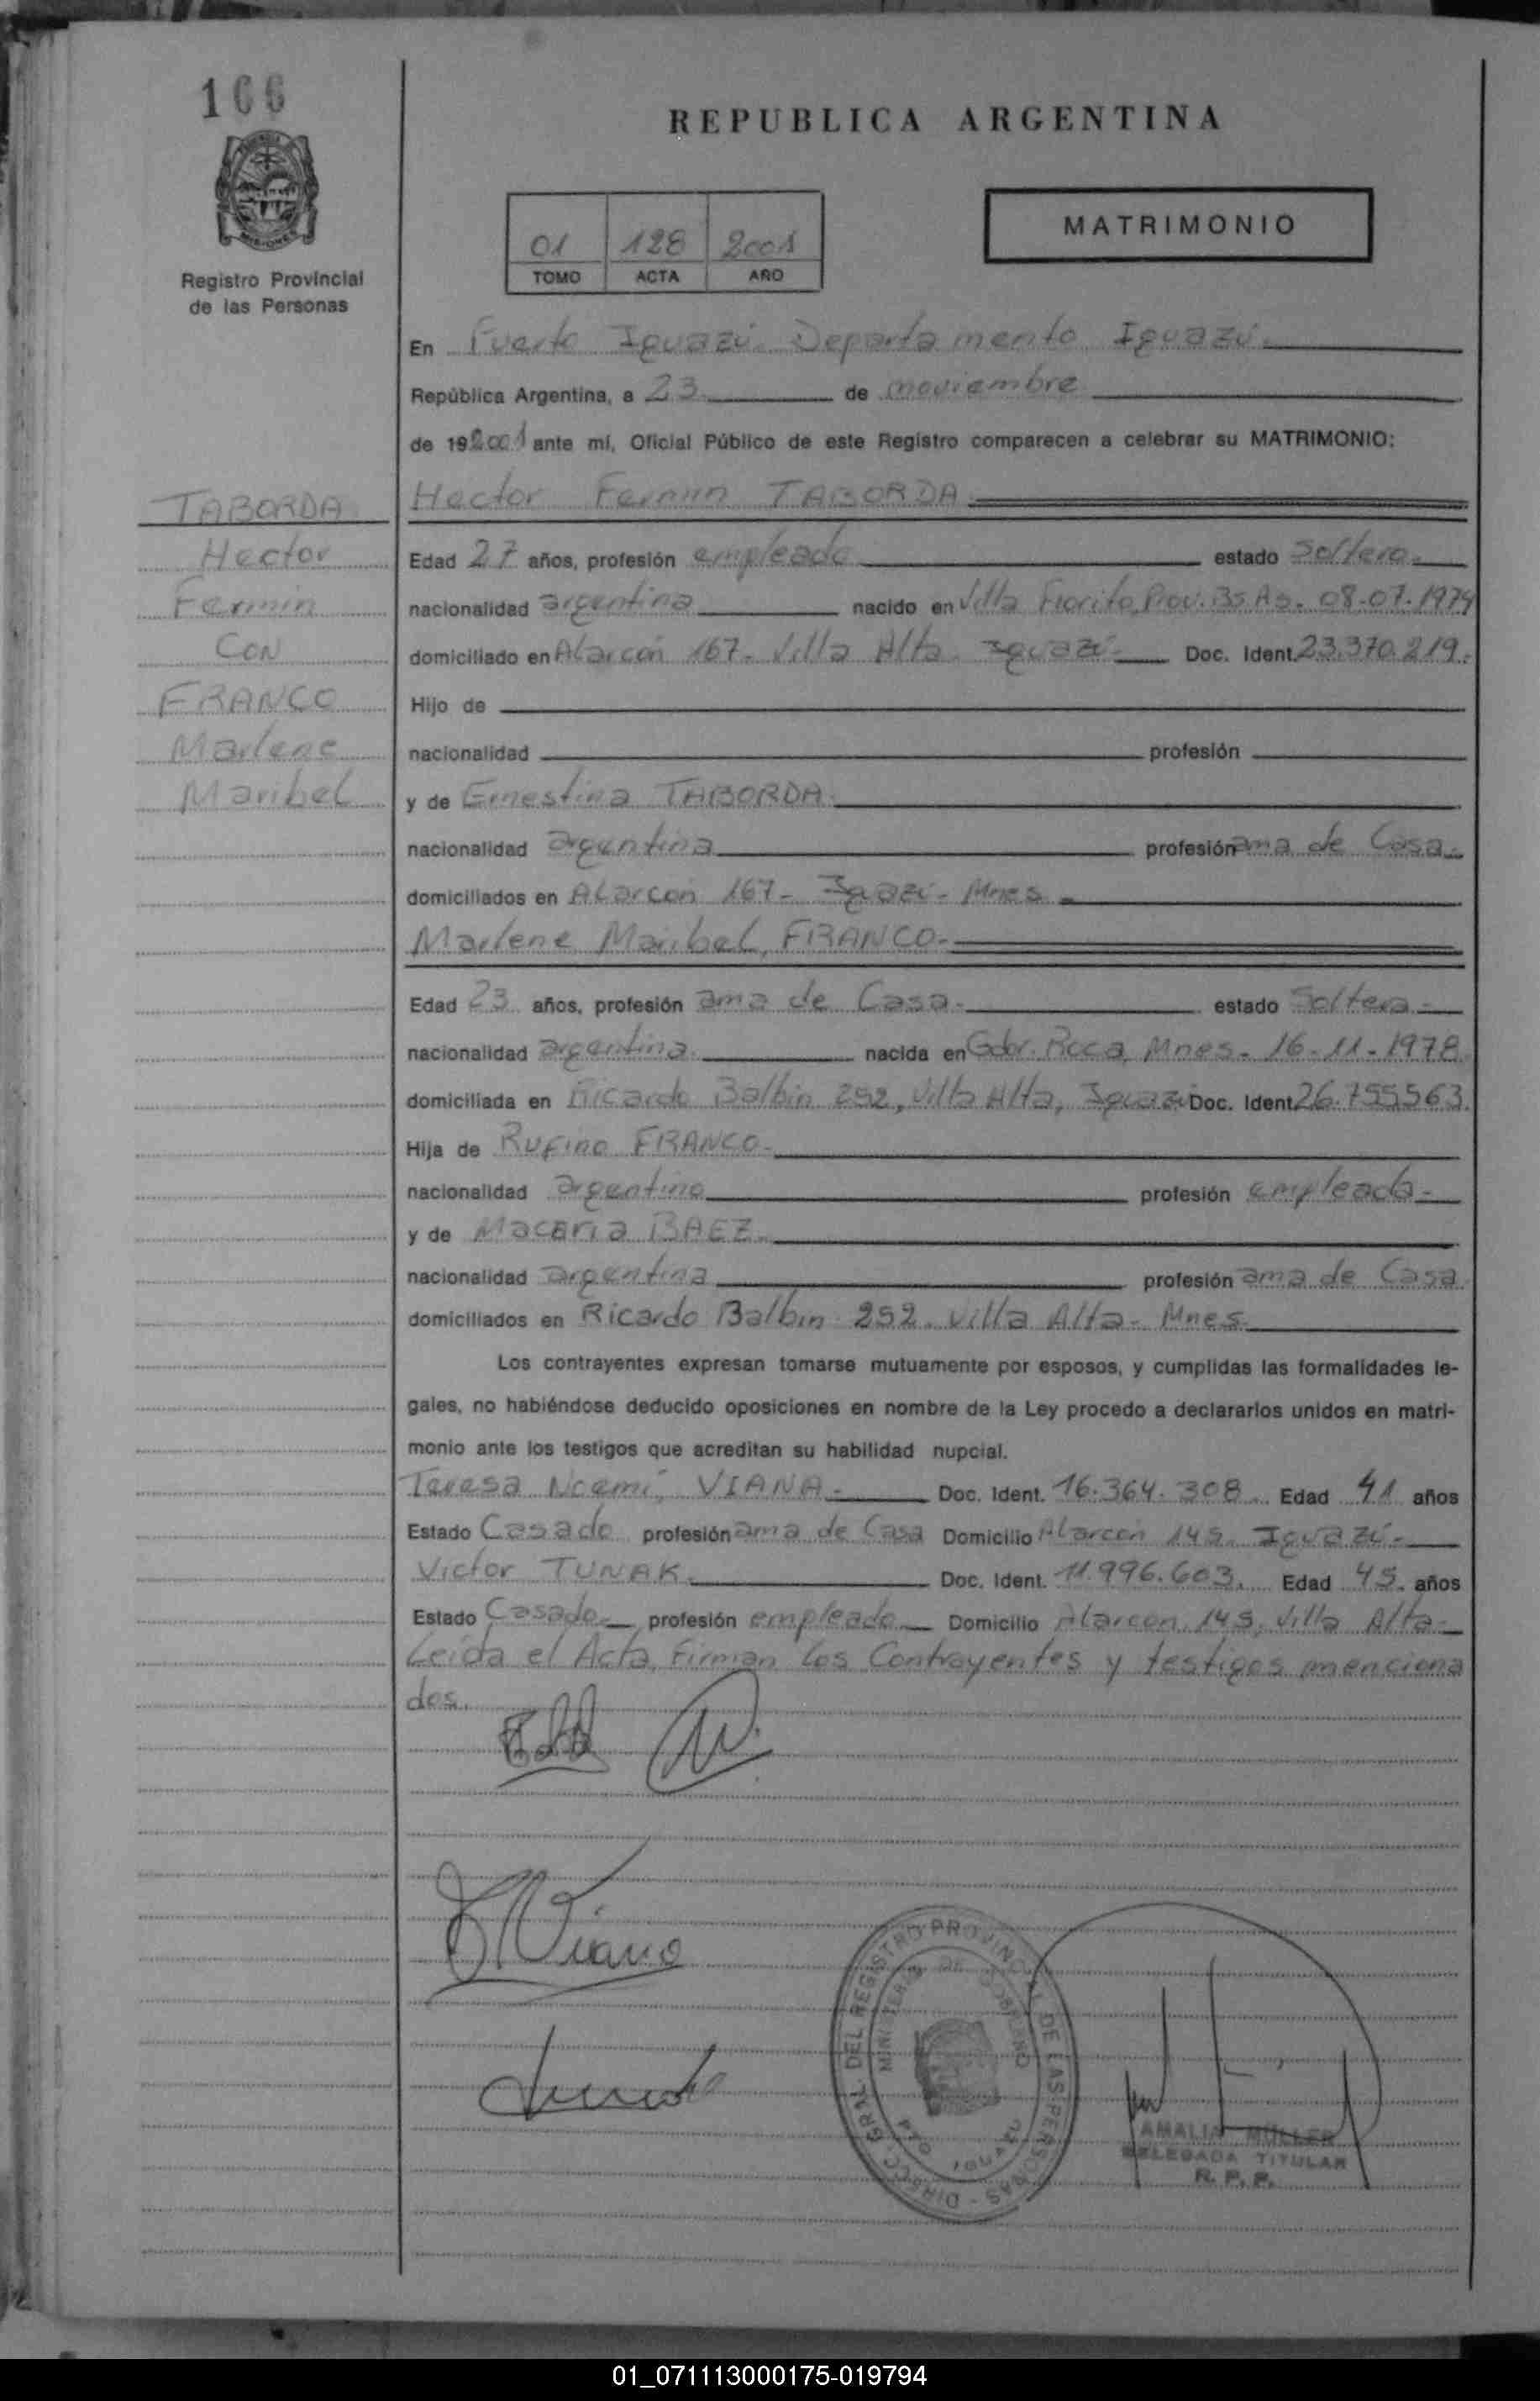 166
REPUBLICA ARGENTINA
MISIONES
Registro Provincial
de las Personas
01 128 2001
TOMO ACTA AÑO
MATRIMONIO
En Puerto Iguazú. Departamento Iguazú.
República Argentina, a 23 de noviembre
de 19 2001 ante mí, Oficial Público de este Registro comparecen a celebrar su MATRIMONIO:
TABORDA
Hector
Fermin
CON
FRANCO
Marlene
Maribel
Hector Fermin TABORDA
Edad 27 años, profesión empleado estado Soltero.
nacionalidad argentina nacido en Villa Fiorito, Prov. Bs. As. 08-07-1974
domiciliado en Alarcón 167- Villa Alta- Iguazú- Doc. Ident. 23.370.219.
Hijo de
nacionalidad profesión
y de Ernestina TABORDA.
nacionalidad argentina profesión ama de Casa.
domiciliados en Alarcon 167- Iguazú- Mnes.
Marlene Maribel, FRANCO.
Edad 23 años, profesión ama de Casa. estado Soltera.
nacionalidad argentina. nacida en Gdor. Roca, Mnes- 16-11-1978.
domiciliada en Ricardo Balbin 252, Villa Alta, Iguazú Doc. Ident. 26.755563.
Hija de Rufino FRANCO.
nacionalidad argentino profesión empleado.
y de Macaria BAEZ.
nacionalidad argentina profesión ama de Casa
domiciliados en Ricardo Balbin 252. Villa Alta- Mnes.
Los contrayentes expresan tomarse mutuamente por esposos, y cumplidas las formalidades le-
gales, no habiéndose deducido oposiciones en nombre de la Ley procedo a declararlos unidos en matri-
monio ante los testigos que acreditan su habilidad nupcial.
Teresa Noemí, VIANA. Doc. Ident. 16.364.308. Edad 41 años
Estado Casado profesión ama de Casa Domicilio Alarcon 145. Iguazú-
Victor TUNAK. Doc. Ident. 11.996.603. Edad 45. años
Estado Casado profesión empleado Domicilio Alarcon, 145, Villa Alta-
Leida el Acta, Firman los Contrayentes y testigos menciona
dos.
Viana
DIRECC. GRAL. DEL REGISTRO PROVINCIAL DE LAS PERSONAS
MINISTERIO DE GOBIERNO
IGUAZU
AMALIA MÜLLER
DELEGADA TITULAR
R. P. P.
01_071113000175-019794